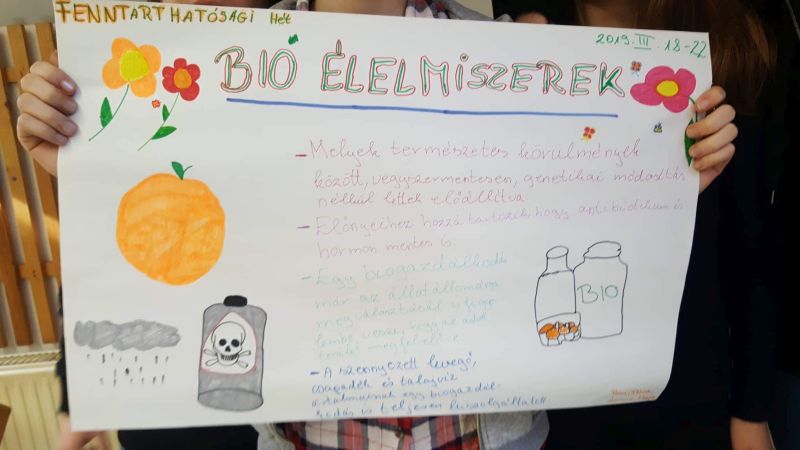 FENNTARTHATÓSÁGI Hét
2019. III. 18-22
BIO ÉLELMISZEREK
- Melyek természetes körülmények
között, vegyszermentesen, genetikai módosítás
nélkül lettek előállítva.
- Előnyeihez hozzá tartozik, hogy antibiotikum és
hormon mentes is.
- Egy biogazdálkodás
már az állatállomány
megválasztásától is
hogy az adott
terület megfelelő-e.
BIO
- A szennyezett levegő,
csapadék és talajvíz
ártalmainak egy biogazdál-
kodás is teljesen kiszolgáltatott